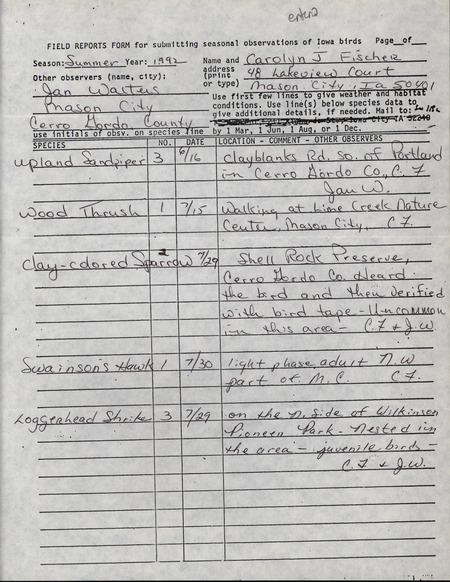 entered
FIELD REPORTS FORM for submitting seasonal observations of Iowa birds Page_of_
Season: Summer Year: 1992 Name and Carolyn J Fischer
address 48 Lakeview Court
Other observers (name, city): (print
or type) Mason City, Ia 50401
Jan Walters
Use first few lines to give weather and habitat
Mason City
conditions. Use line(s) below species data to
give additional details, if needed. Mail to:
Cerro Gordo County
Iowa City IA 52240
use initials of obsv. on species line by 1 Mar, 1 Jun, 1 Aug, or 1 Dec.
SPECIES NO. DATE LOCATION - COMMENT - OTHER OBSERVERS
Upland Sandpiper 3 6/16 Clayblanks Rd. so. of Portland
in Cerro Gordo Co., C. F
Jan W.
Wood Thrush 1 7/15 Walking at Lime Creek Nature
Center, Mason City, C F.
Clay-colored Sparrow 2 7/29 Shell Rock Preserve,
Cerro Gordo Co. Heard
the bird and then verified
with bird tape - Uncommon
in this area - C.F & J.W.
Swainson's Hawk 1 7/30 light phase adult N.W
part of M.C. C F.
Loggerhead Shrike 3 7/29 on the N. Side of Wilkinson
Pioneer Park - Nested in
the area - juvenile birds -
C.F & J.W.